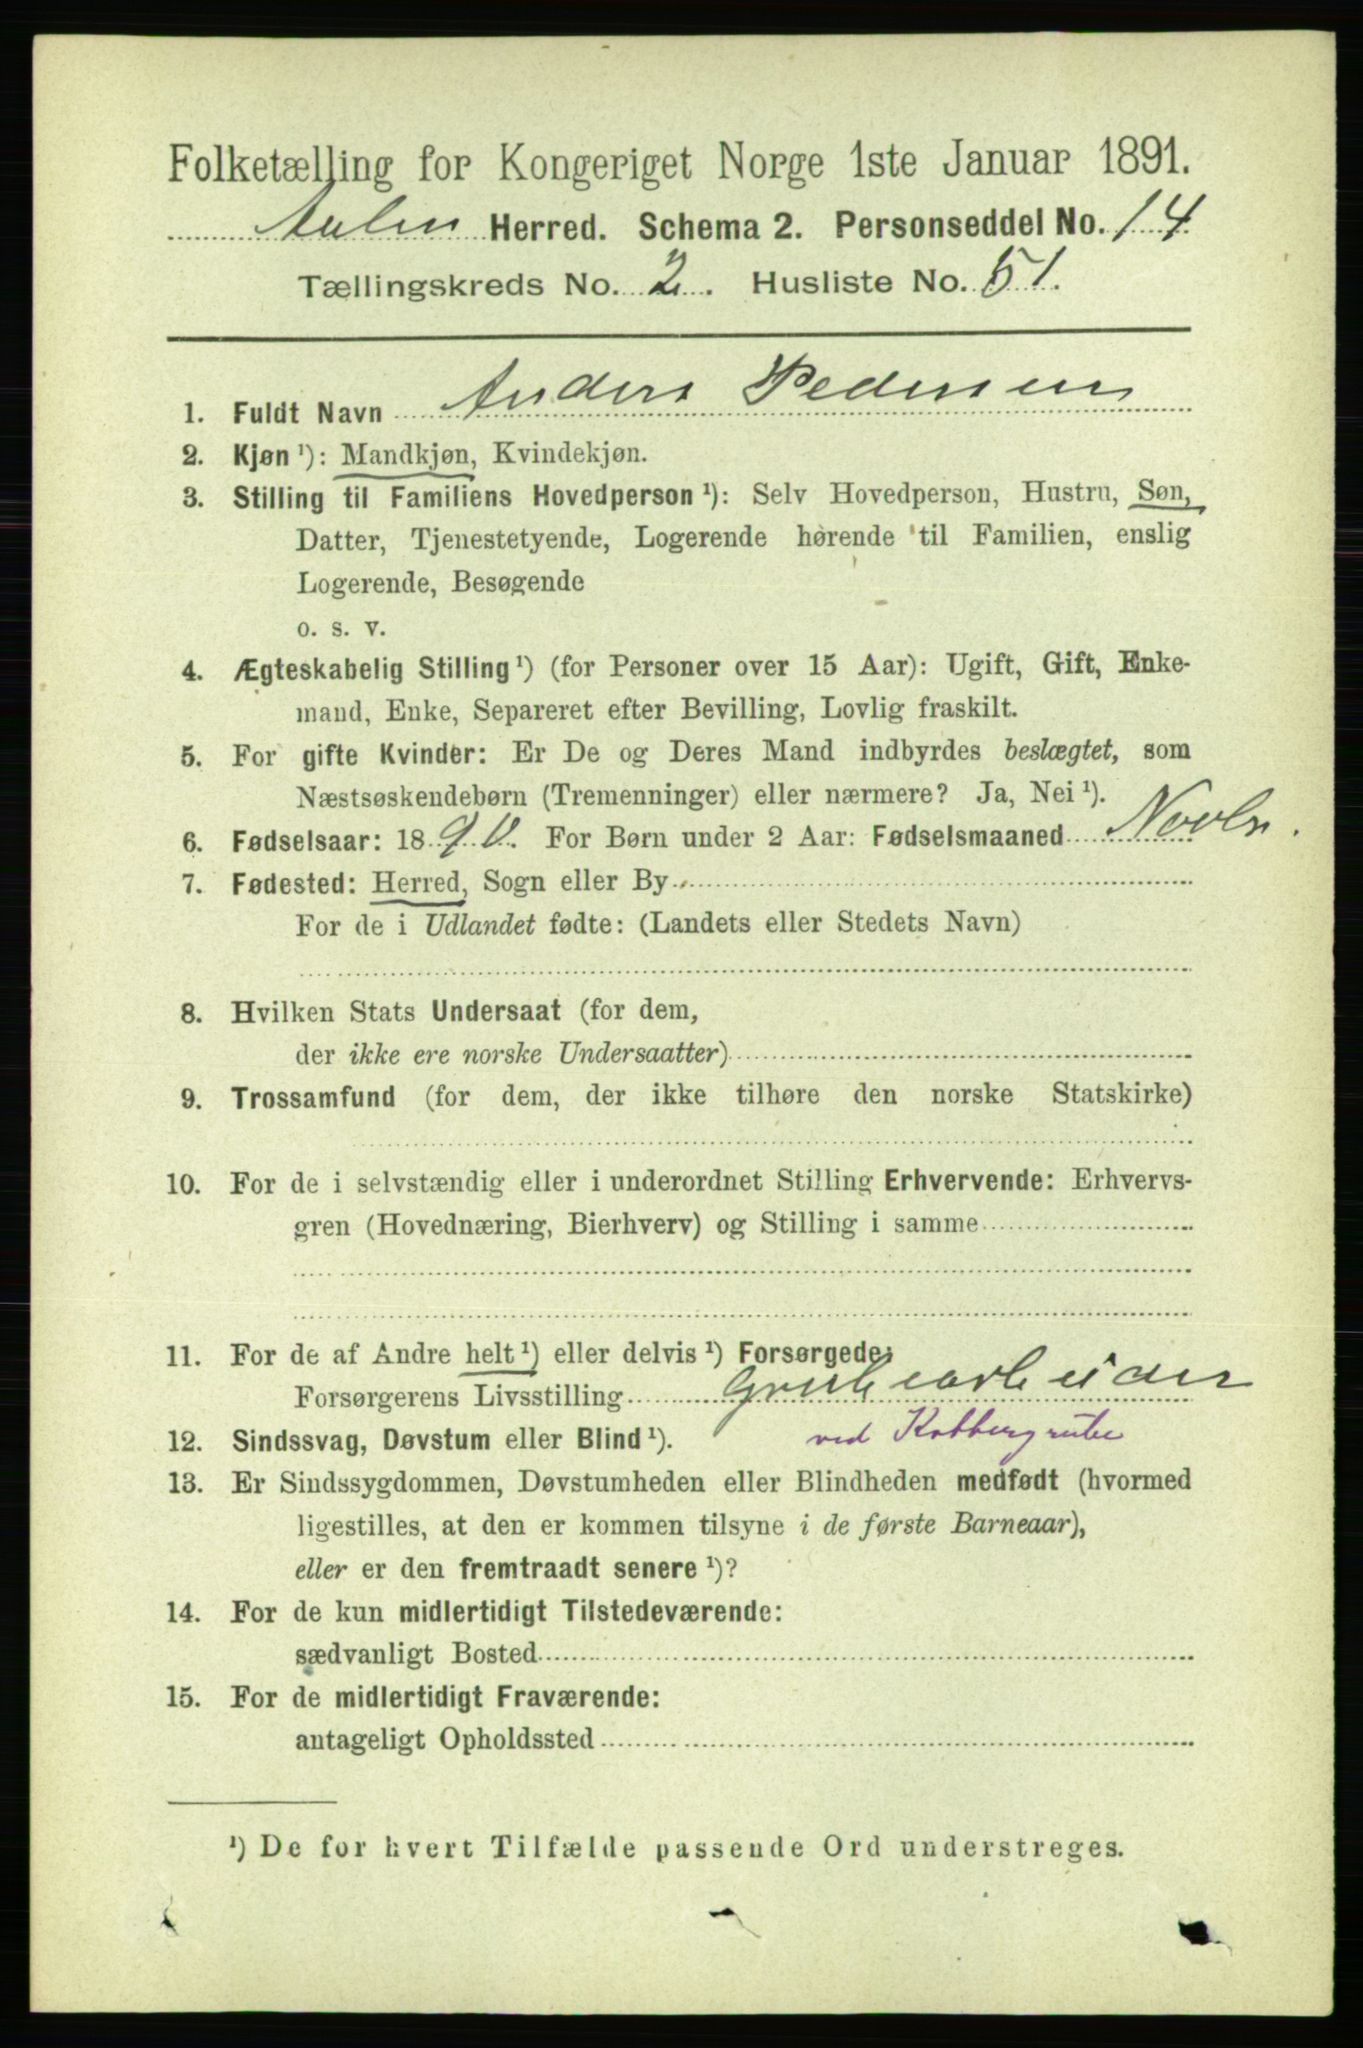 Folketælling for Kongeriget Norge 1ste Januar 1891.
Aalen Herred. Schema 2. Personseddel No. 14
Tællingskreds No. 2. Husliste No. 51.
1. Fuldt Navn Anders Pedersen
2. Kjøn ¹): Mandkjøn, Kvindekjøn.
3. Stilling til Familiens Hovedperson ¹): Selv Hovedperson, Hustru, Søn,
Datter, Tjenestetyende, Logerende hørende til Familien, enslig
Logerende, Besøgende
o. s. v.
4. Ægteskabelig Stilling ¹) (for Personer over 15 Aar): Ugift, Gift, Enke-
mand, Enke, Separeret efter Bevilling, Lovlig fraskilt.
5. For gifte Kvinder: Er De og Deres Mand indbyrdes beslægtet, som
Næstsøskendebørn (Tremenninger) eller nærmere? Ja, Nei ¹).
6. Fødselsaar: 1890. For Børn under 2 Aar: Fødselsmaaned Novbr.
7. Fødested: Herred, Sogn eller By
For de i Udlandet fødte: (Landets eller Stedets Navn)
8. Hvilken Stats Undersaat (for dem,
der ikke ere norske Undersaatter)
9. Trossamfund (for dem, der ikke tilhøre den norske Statskirke)
10. For de i selvstændig eller i underordnet Stilling Erhvervende: Erhvervs-
gren (Hovednæring, Bierhverv) og Stilling i samme
11. For de af Andre helt ¹) eller delvis ¹) Forsørgede:
Forsørgerens Livsstilling Grubearbeider
ved Kobbergrube
12. Sindssvag, Døvstum eller Blind ¹).
13. Er Sindssygdommen, Døvstumheden eller Blindheden medfødt (hvormed
ligestilles, at den er kommen tilsyne i de første Barneaar),
eller er den fremtraadt senere ¹)?
14. For de kun midlertidigt Tilstedeværende:
sædvanligt Bosted
15. For de midlertidigt Fraværende:
antageligt Opholdssted
¹) De for hvert Tilfælde passende Ord understreges.